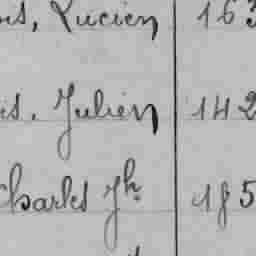 Lucien 163
Julien 142
Charles Jh. 185